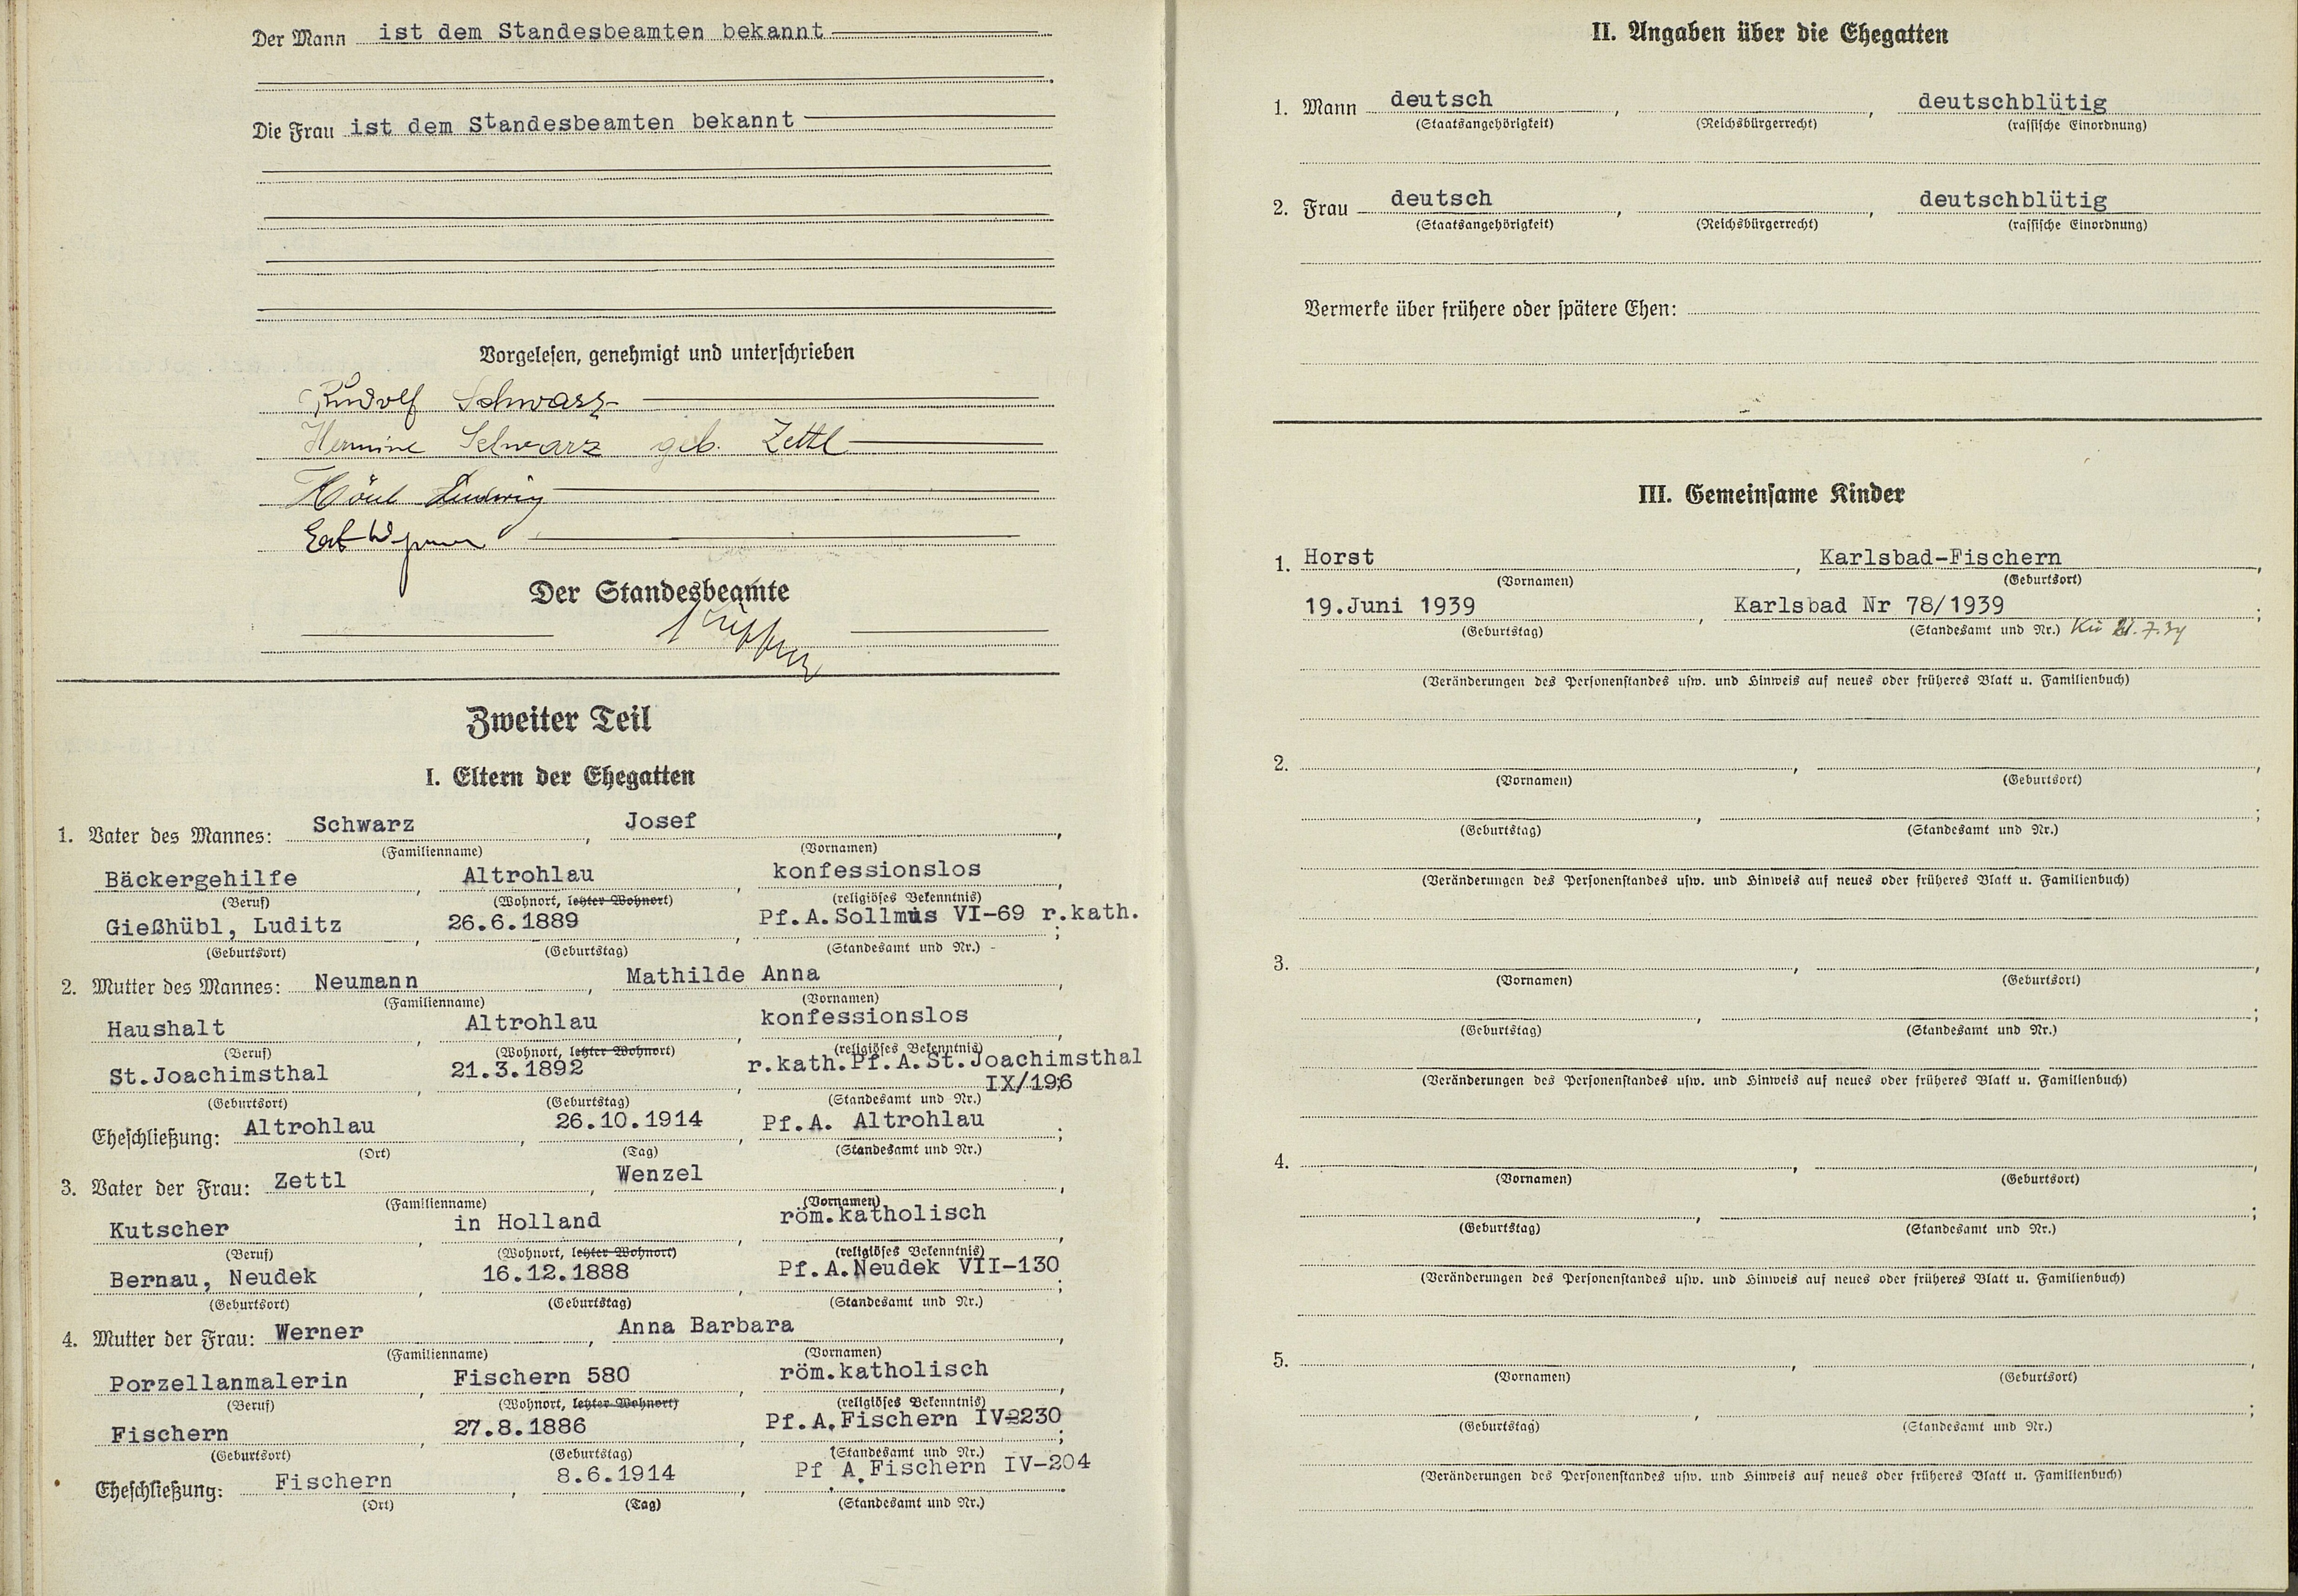 Der Mann ist dem Standesbeamten bekannt
Die Frau ist dem Standesbeamten bekannt
Vorgelesen, genehmigt und unterschrieben
Rudolf Schwarz
Hermine Schwarz geb. Zettl
Ludwig
Der Standesbeamte
Zweiter Teil
I. Eltern der Ehegatten
1. Vater des Mannes: Schwarz, Josef,
(Familienname) (Vornamen)
Bäckergehilfe, Altrohlau, konfessionslos,
(Beruf) (Wohnort, letzter Wohnort) (religiöses Bekenntnis)
Gießhübl, Luditz, 26.6.1889, Pf.A.Sollmus VI-69 r.kath.;
(Geburtsort) (Geburtstag) (Standesamt und Nr.)
2. Mutter des Mannes: Neumann, Mathilde Anna,
(Familienname) (Vornamen)
Haushalt, Altrohlau, konfessionslos,
(Beruf) (Wohnort, letzter Wohnort) (religiöses Bekenntnis)
St.Joachimsthal, 21.3.1892, r.kath.Pf.A.St.Joachimsthal
IX/196;
(Geburtsort) (Geburtstag) (Standesamt und Nr.)
Eheschließung: Altrohlau, 26.10.1914, Pf.A. Altrohlau;
(Ort) (Tag) (Standesamt und Nr.)
3. Vater der Frau: Zettl, Wenzel,
(Familienname) (Vornamen)
Kutscher, in Holland, röm.katholisch,
(Beruf) (Wohnort, letzter Wohnort) (religiöses Bekenntnis)
Bernau, Neudek, 16.12.1888, Pf.A.Neudek VII-130;
(Geburtsort) (Geburtstag) (Standesamt und Nr.)
4. Mutter der Frau: Werner, Anna Barbara,
(Familienname) (Vornamen)
Porzellanmalerin, Fischern 580, röm.katholisch,
(Beruf) (Wohnort, letzter Wohnort) (religiöses Bekenntnis)
Fischern, 27.8.1886, Pf.A.Fischern IV-230;
(Geburtsort) (Geburtstag) (Standesamt und Nr.)
Eheschließung: Fischern, 8.6.1914, Pf.A.Fischern IV-204.
(Ort) (Tag) (Standesamt und Nr.)
II. Angaben über die Ehegatten
1. Mann deutsch, , deutschblütig
(Staatsangehörigkeit) (Reichsbürgerrecht) (rassische Einordnung)
2. Frau deutsch, , deutschblütig
(Staatsangehörigkeit) (Reichsbürgerrecht) (rassische Einordnung)
Vermerke über frühere oder spätere Ehen:
III. Gemeinsame Kinder
1. Horst, Karlsbad-Fischern,
(Vornamen) (Geburtsort)
19.Juni 1939, Karlsbad Nr 78/1939;
(Geburtstag) (Standesamt und Nr.)
(Veränderungen des Personenstandes usw. und Hinweis auf neues oder früheres Blatt u. Familienbuch)
2. , ,
(Vornamen) (Geburtsort)
, ;
(Geburtstag) (Standesamt und Nr.)
(Veränderungen des Personenstandes usw. und Hinweis auf neues oder früheres Blatt u. Familienbuch)
3. , ,
(Vornamen) (Geburtsort)
, ;
(Geburtstag) (Standesamt und Nr.)
(Veränderungen des Personenstandes usw. und Hinweis auf neues oder früheres Blatt u. Familienbuch)
4. , ,
(Vornamen) (Geburtsort)
, ;
(Geburtstag) (Standesamt und Nr.)
(Veränderungen des Personenstandes usw. und Hinweis auf neues oder früheres Blatt u. Familienbuch)
5. , ,
(Vornamen) (Geburtsort)
, ;
(Geburtstag) (Standesamt und Nr.)
(Veränderungen des Personenstandes usw. und Hinweis auf neues oder früheres Blatt u. Familienbuch)